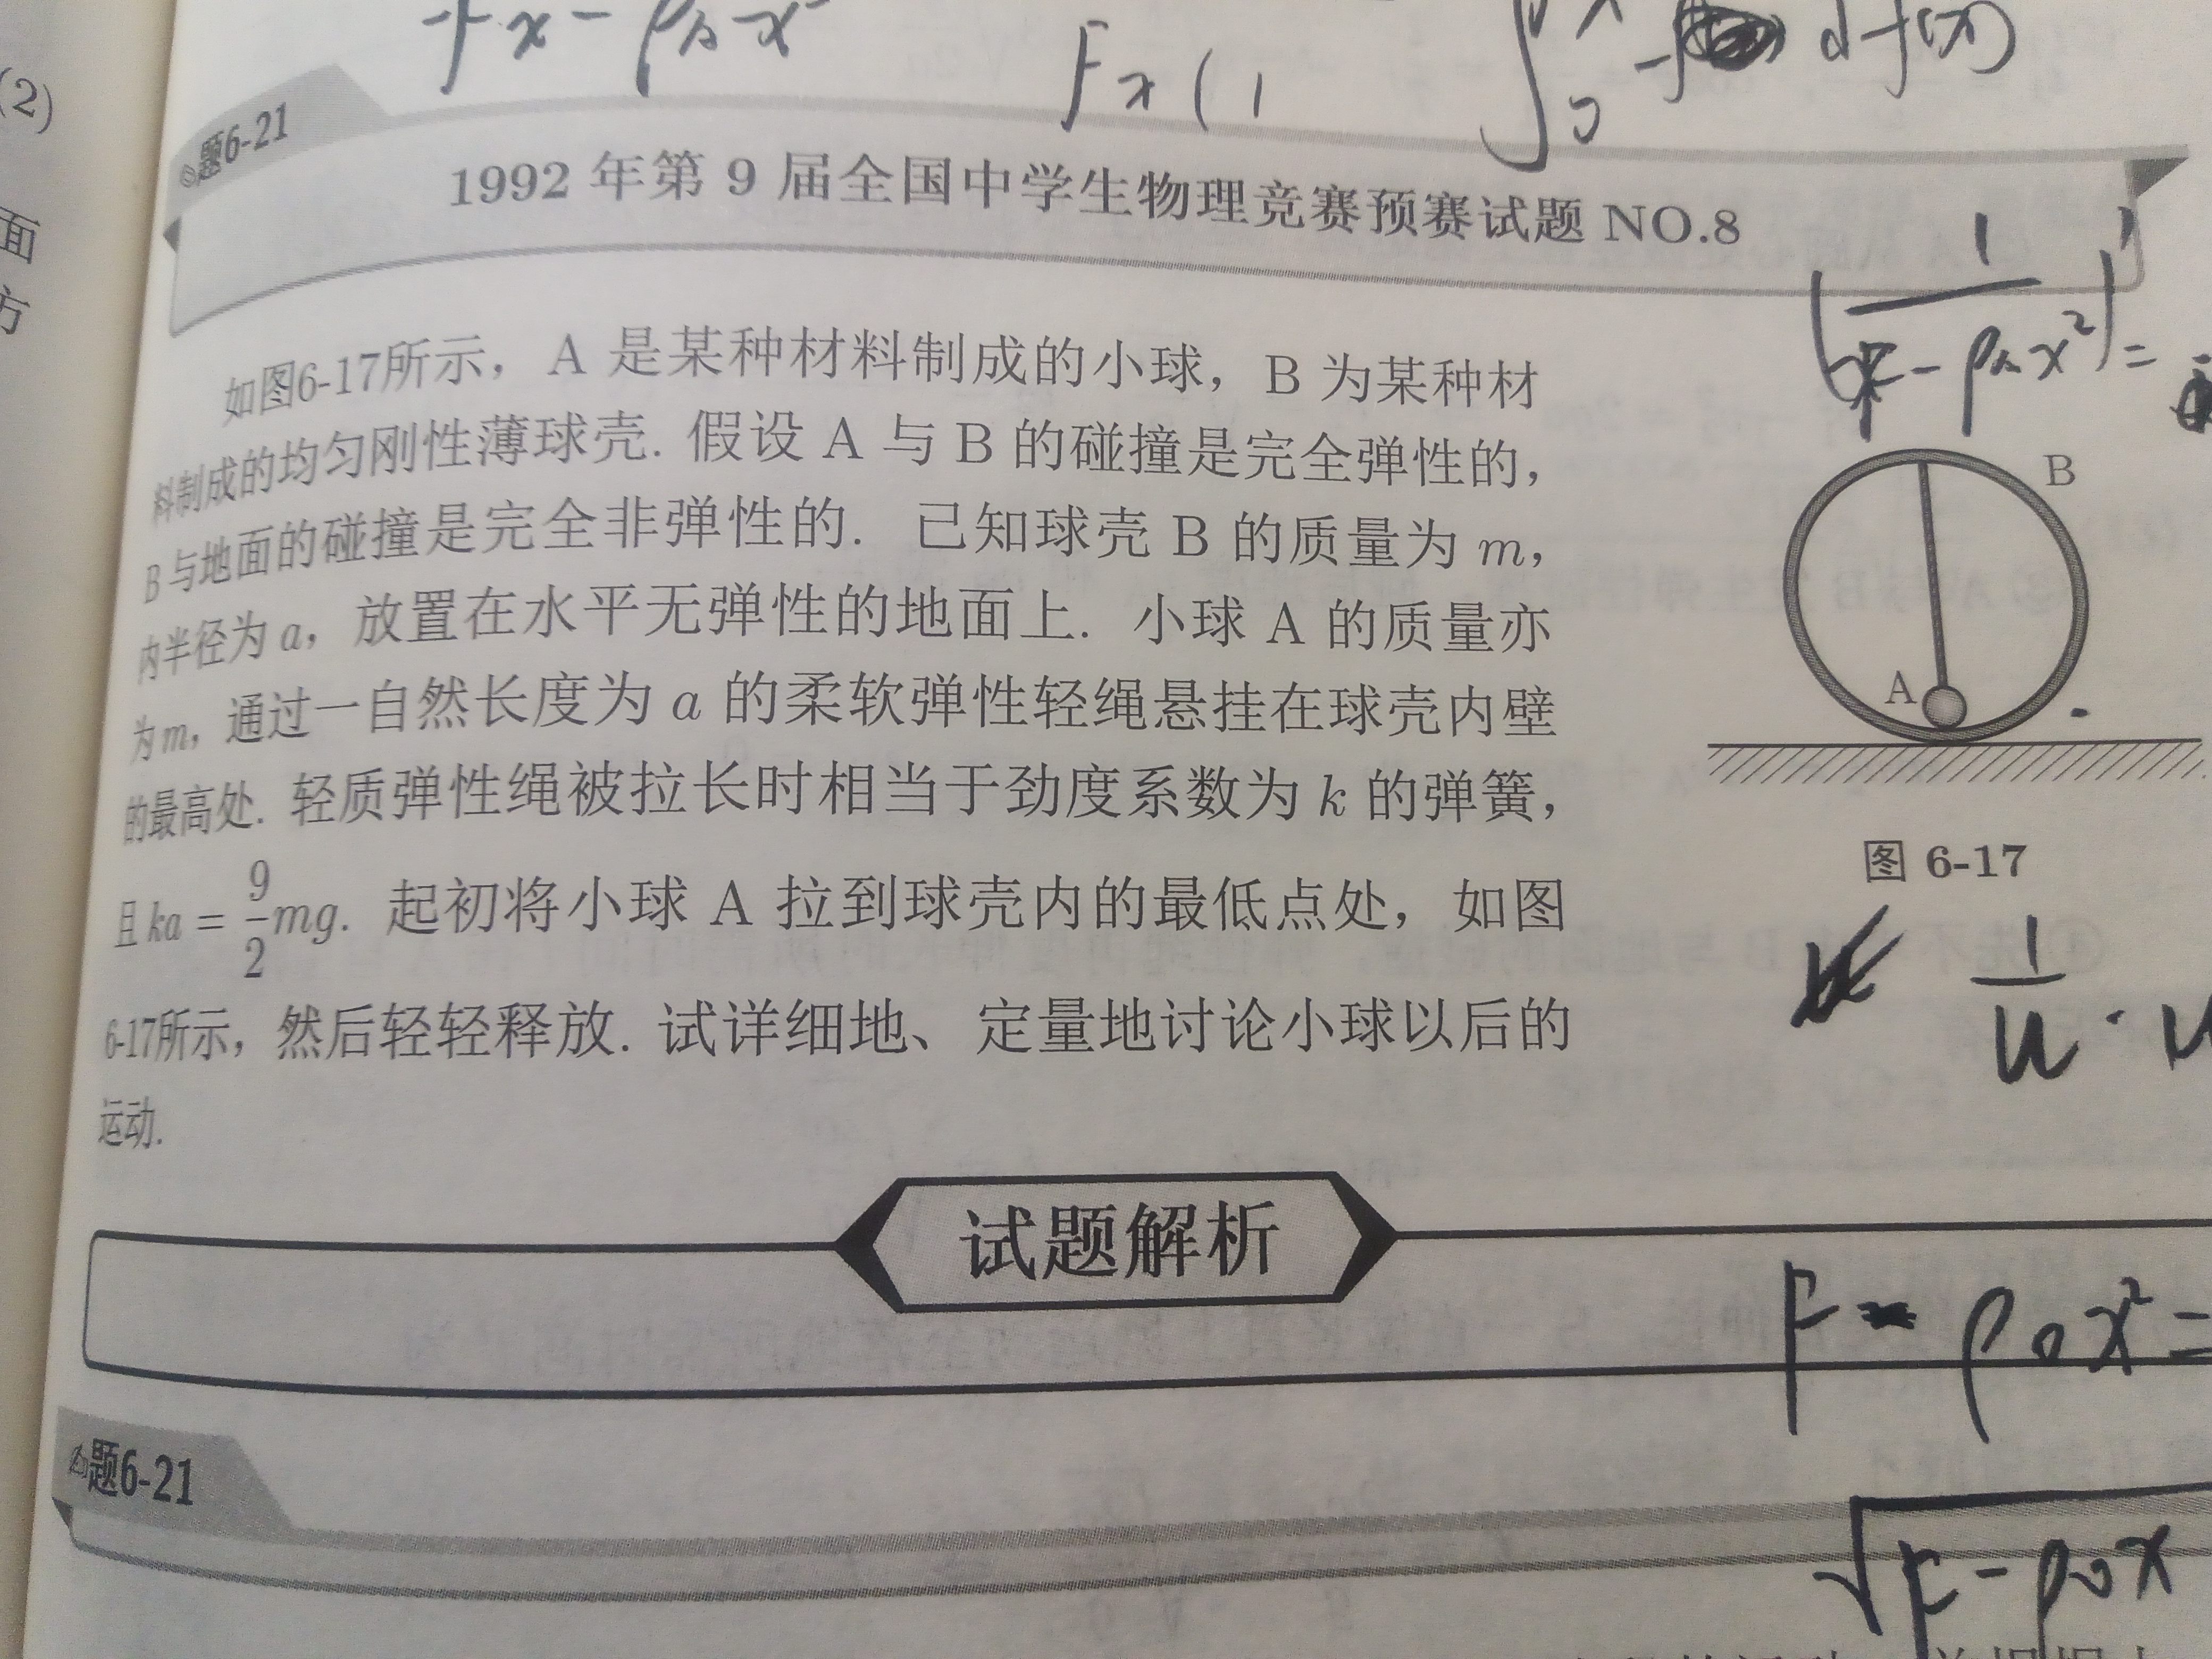 (2)
面
方
Fx(1
题6-21
1992 年第 9 届全国中学生物理竞赛预赛试题 NO.8
如图6-17所示，A 是某种材料制成的小球，B 为某种材
料制成的均匀刚性薄球壳. 假设 A 与 B 的碰撞是完全弹性的，
B 与地面的碰撞是完全非弹性的. 已知球壳 B 的质量为 m，
内半径为 a，放置在水平无弹性的地面上. 小球 A 的质量亦
为 m，通过一自然长度为 a 的柔软弹性轻绳悬挂在球壳内壁
的最高处. 轻质弹性绳被拉长时相当于劲度系数为 k 的弹簧，
且 ka = 9/2 mg. 起初将小球 A 拉到球壳内的最低点处，如图
6-17所示，然后轻轻释放. 试详细地、定量地讨论小球以后的
运动.
B
A
图 6-17
1/u ·
试题解析
题6-21